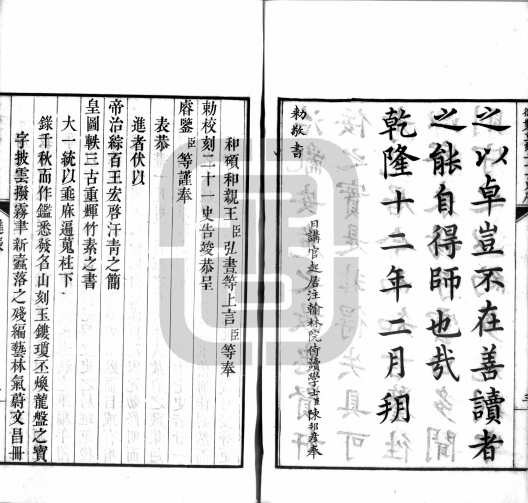 之以卓豈不在善讀者
之能自得師也哉
乾隆十二年二月朔
日講官起居注翰林院侍讀學士臣陳邦彥奉
勅敬書
和碩和親王臣弘晝等上言臣等奉
勅校刻二十一史告竣恭呈
睿鑒臣等謹奉
表恭
進者伏以
帝治綜百王宏啓汗青之簡
皇圖軼三古重輝竹素之書
大一統以
錄千秋而作鑑悉發名山刻玉鏤瓊丕煥龍盤之寶
字披雲撥霧聿新蠹落之殘編藝林氣蔚文昌冊